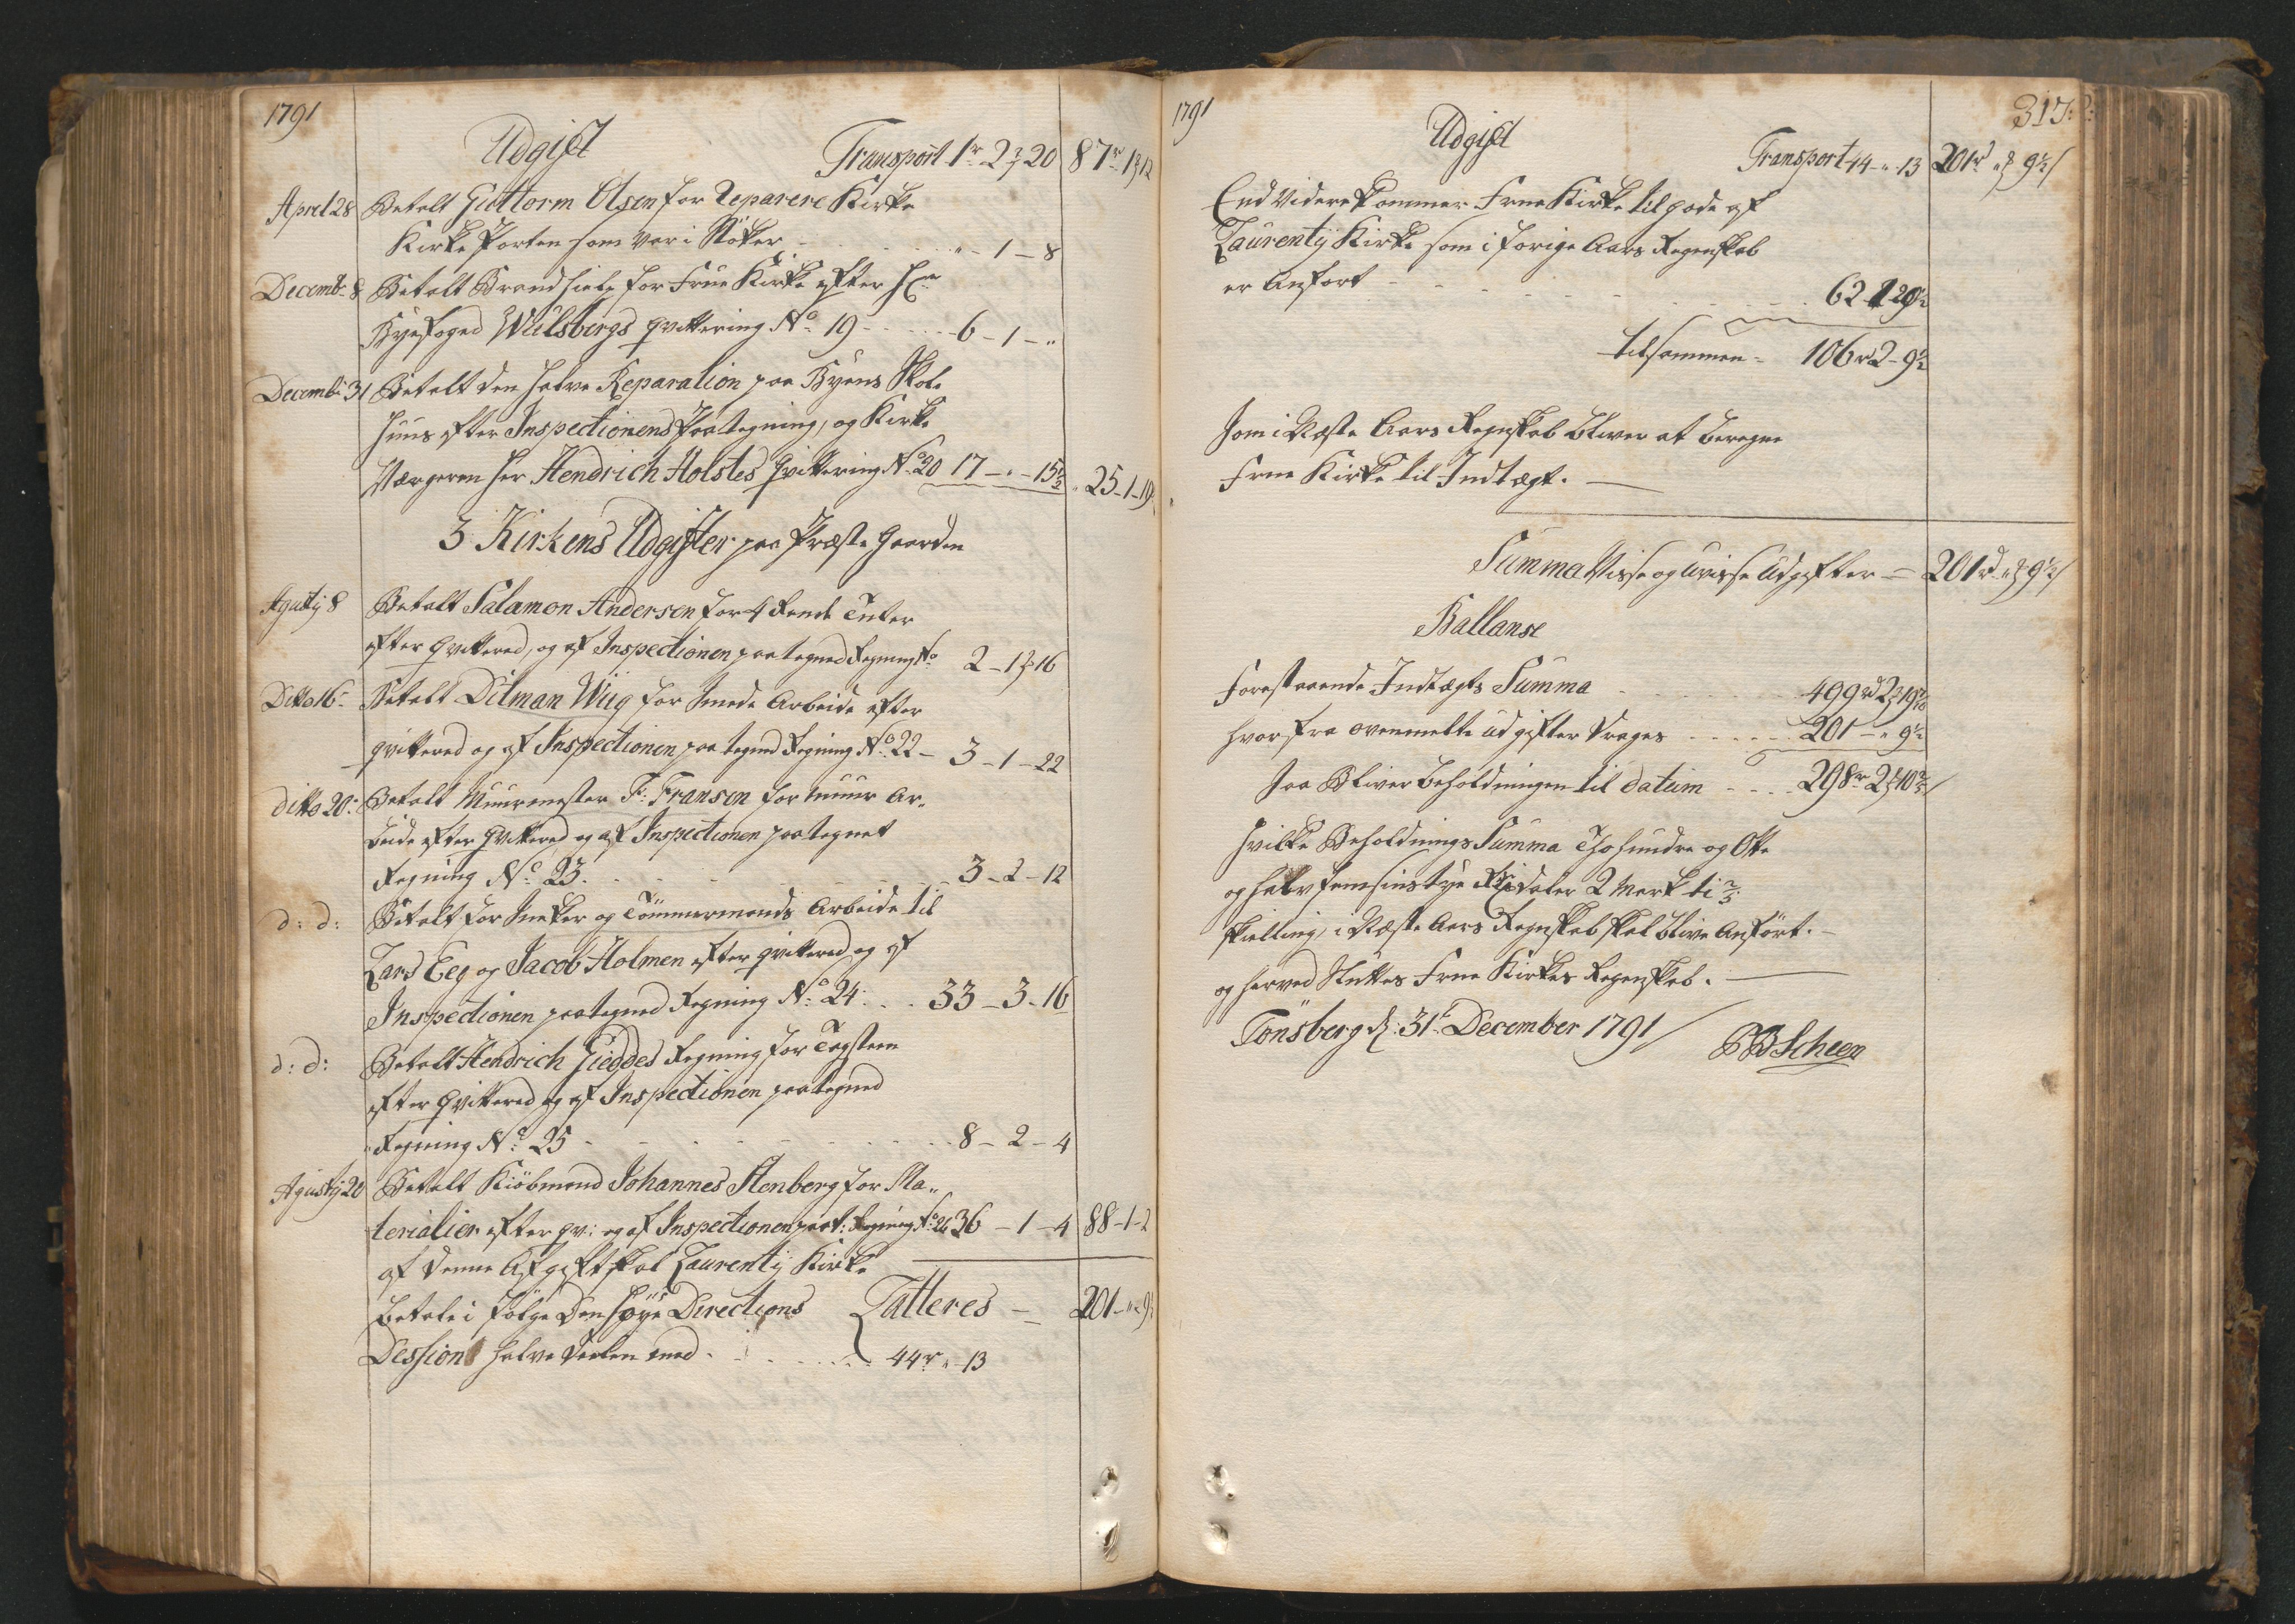 1791
Udgift
Transport 1r 2 ₰ 20 87r 1 ₰ 12
Aprel 28 Betalt Guttorm Olsen for Reparere Kirke
Kirke Porten som var i Støker " - 1 - 8
Decembr 8 Betalt Brandhielp for Frue Kirke efter Hr
Byefoged Wulsbergs qvittering No 19 - 6 - 1 - "
Decembr 31 Betalt den halve Reparation paa Byens Skole
huus efter Inspectionens Paategning, og Kirke
Værgeren Her Hendrich Holstes qvittering No 20 17 - " - 15½ 25 - 1 - 19
3 Kirkens Udgifter paa Præste Gaarden
Agustÿ 8 Betalt Salamon Andersen for 4 Rende
efter qvittered, og af Inspectionen paategned Regning No 2 - 1 ₰ 16
Ditto 16 Betalt Ditman Wiig for Smede Arbeide efter
qvittered og af Inspectionen paategned Regning No 22 - 3 - 1 - 22
ditto 20: Betalt Muurmester F: Fransen for Muur Ar„
beide efter qvittered og af Inspectionen paategnet
Regning No 23. 3 - 2 - 12
d: d: Betalt for Sneker og Tömmermands Arbeide til
Lars Eeg og Jacob Holmen efter qvittered og af
Inspectionen paategned Regning No 24: 33 - 3 - 16
d: d: Betalt Hendrich Gieddes Regning for Tagsteen
efter qvittered og af Inspectionen paategned
Regning No 25 8 - 2 - 4
Agustÿ 20 Betalt Kiöbmand Johannes Stenberg for Ma„
terialier efter qv: og af Inspectionen paat: Regning No 26 36 - 1 - 4 88 - 1 - 2
af denne Afgift skal Laurentÿ Kirke
betale i følge Den høye Directions Latteres - 201 - " - 9½
Dession halve Deelen med 44r " 13
1791
317:
Udgift
Transport 44 - " 13 201r " ₰ 9½
End Videre kommer Frue Kirke tilgode af
Laurentÿ Kirke som i forige Aars Regenskab
er Anfört 62 - 1 20½
tilsammen - 106r 2 - 9½
som i Næste Aars Regnskab bliver at beregne
Frue Kirke til Indtægt.
Summa Visse og uvisse Udgifter = 201r " ₰ 9½
Ballanse
Forestaaende Indtægts Summa 499rd 2 ₰ 19 9/10
hvorfra ovenmelte udgifter drages 201 - " 9½
saa Bliver beholdningen til datum 298r 2 ₰ 10⅖
hvilke Beholdnings Summa Tho hundre og Otte
og halvfemsinstyve Rixdaler 2 Mark ti ⅖
skielling, i Næste Aars Regnskab skal blive Anfört.
og herved Sluttes Frue Kirkes Regenskab.
Tönsberg d: 31te December 1791
Scheen